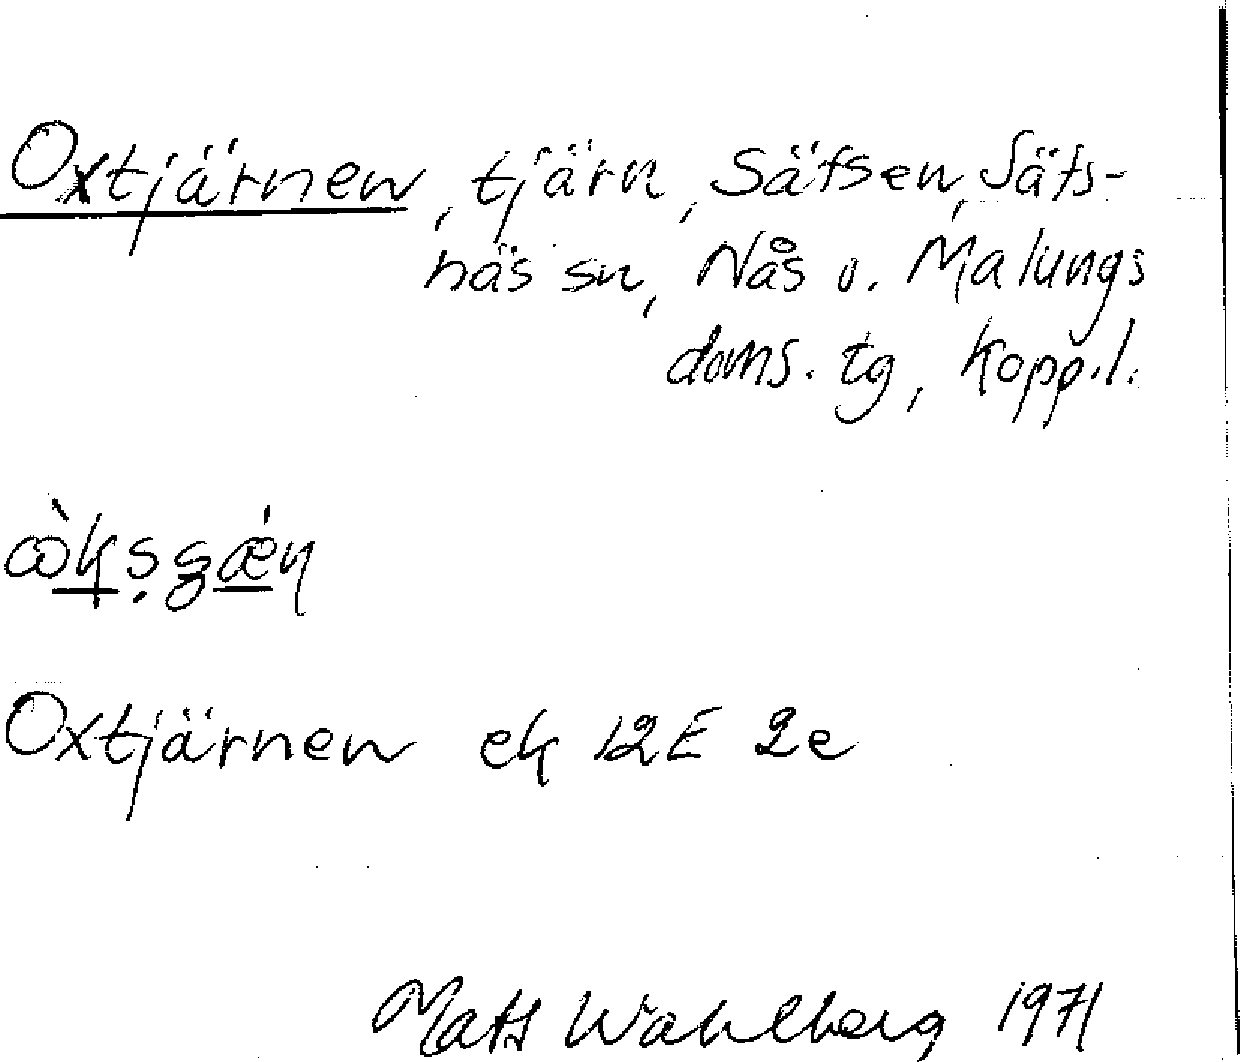 Oxtjärnen, tjärn, Säfsen, Säfs-
näs sn, Nås o. Malungs
doms. tg, Kopp.l.
Oxtjärnen ek 12E 2e
Mats Wahlberg 1971